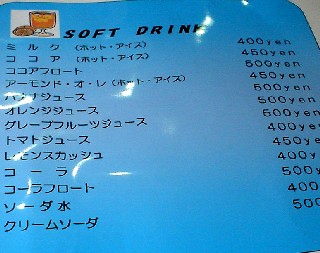 SOFT DRINK
ミルク (ホット・アイス) 400yen
ココア (ホット・アイス) 450yen
ココアフロート 500yen
アーモンド・オ・レ (ホット・アイス) 450yen
バナナジュース 500yen
オレンジジュース 500yen
グレープフルーツジュース 500yen
トマトジュース 400yen
レモンスカッシュ 450yen
コーラ 400y
コーラフロート 500
ソーダ水 400
クリームソーダ 500